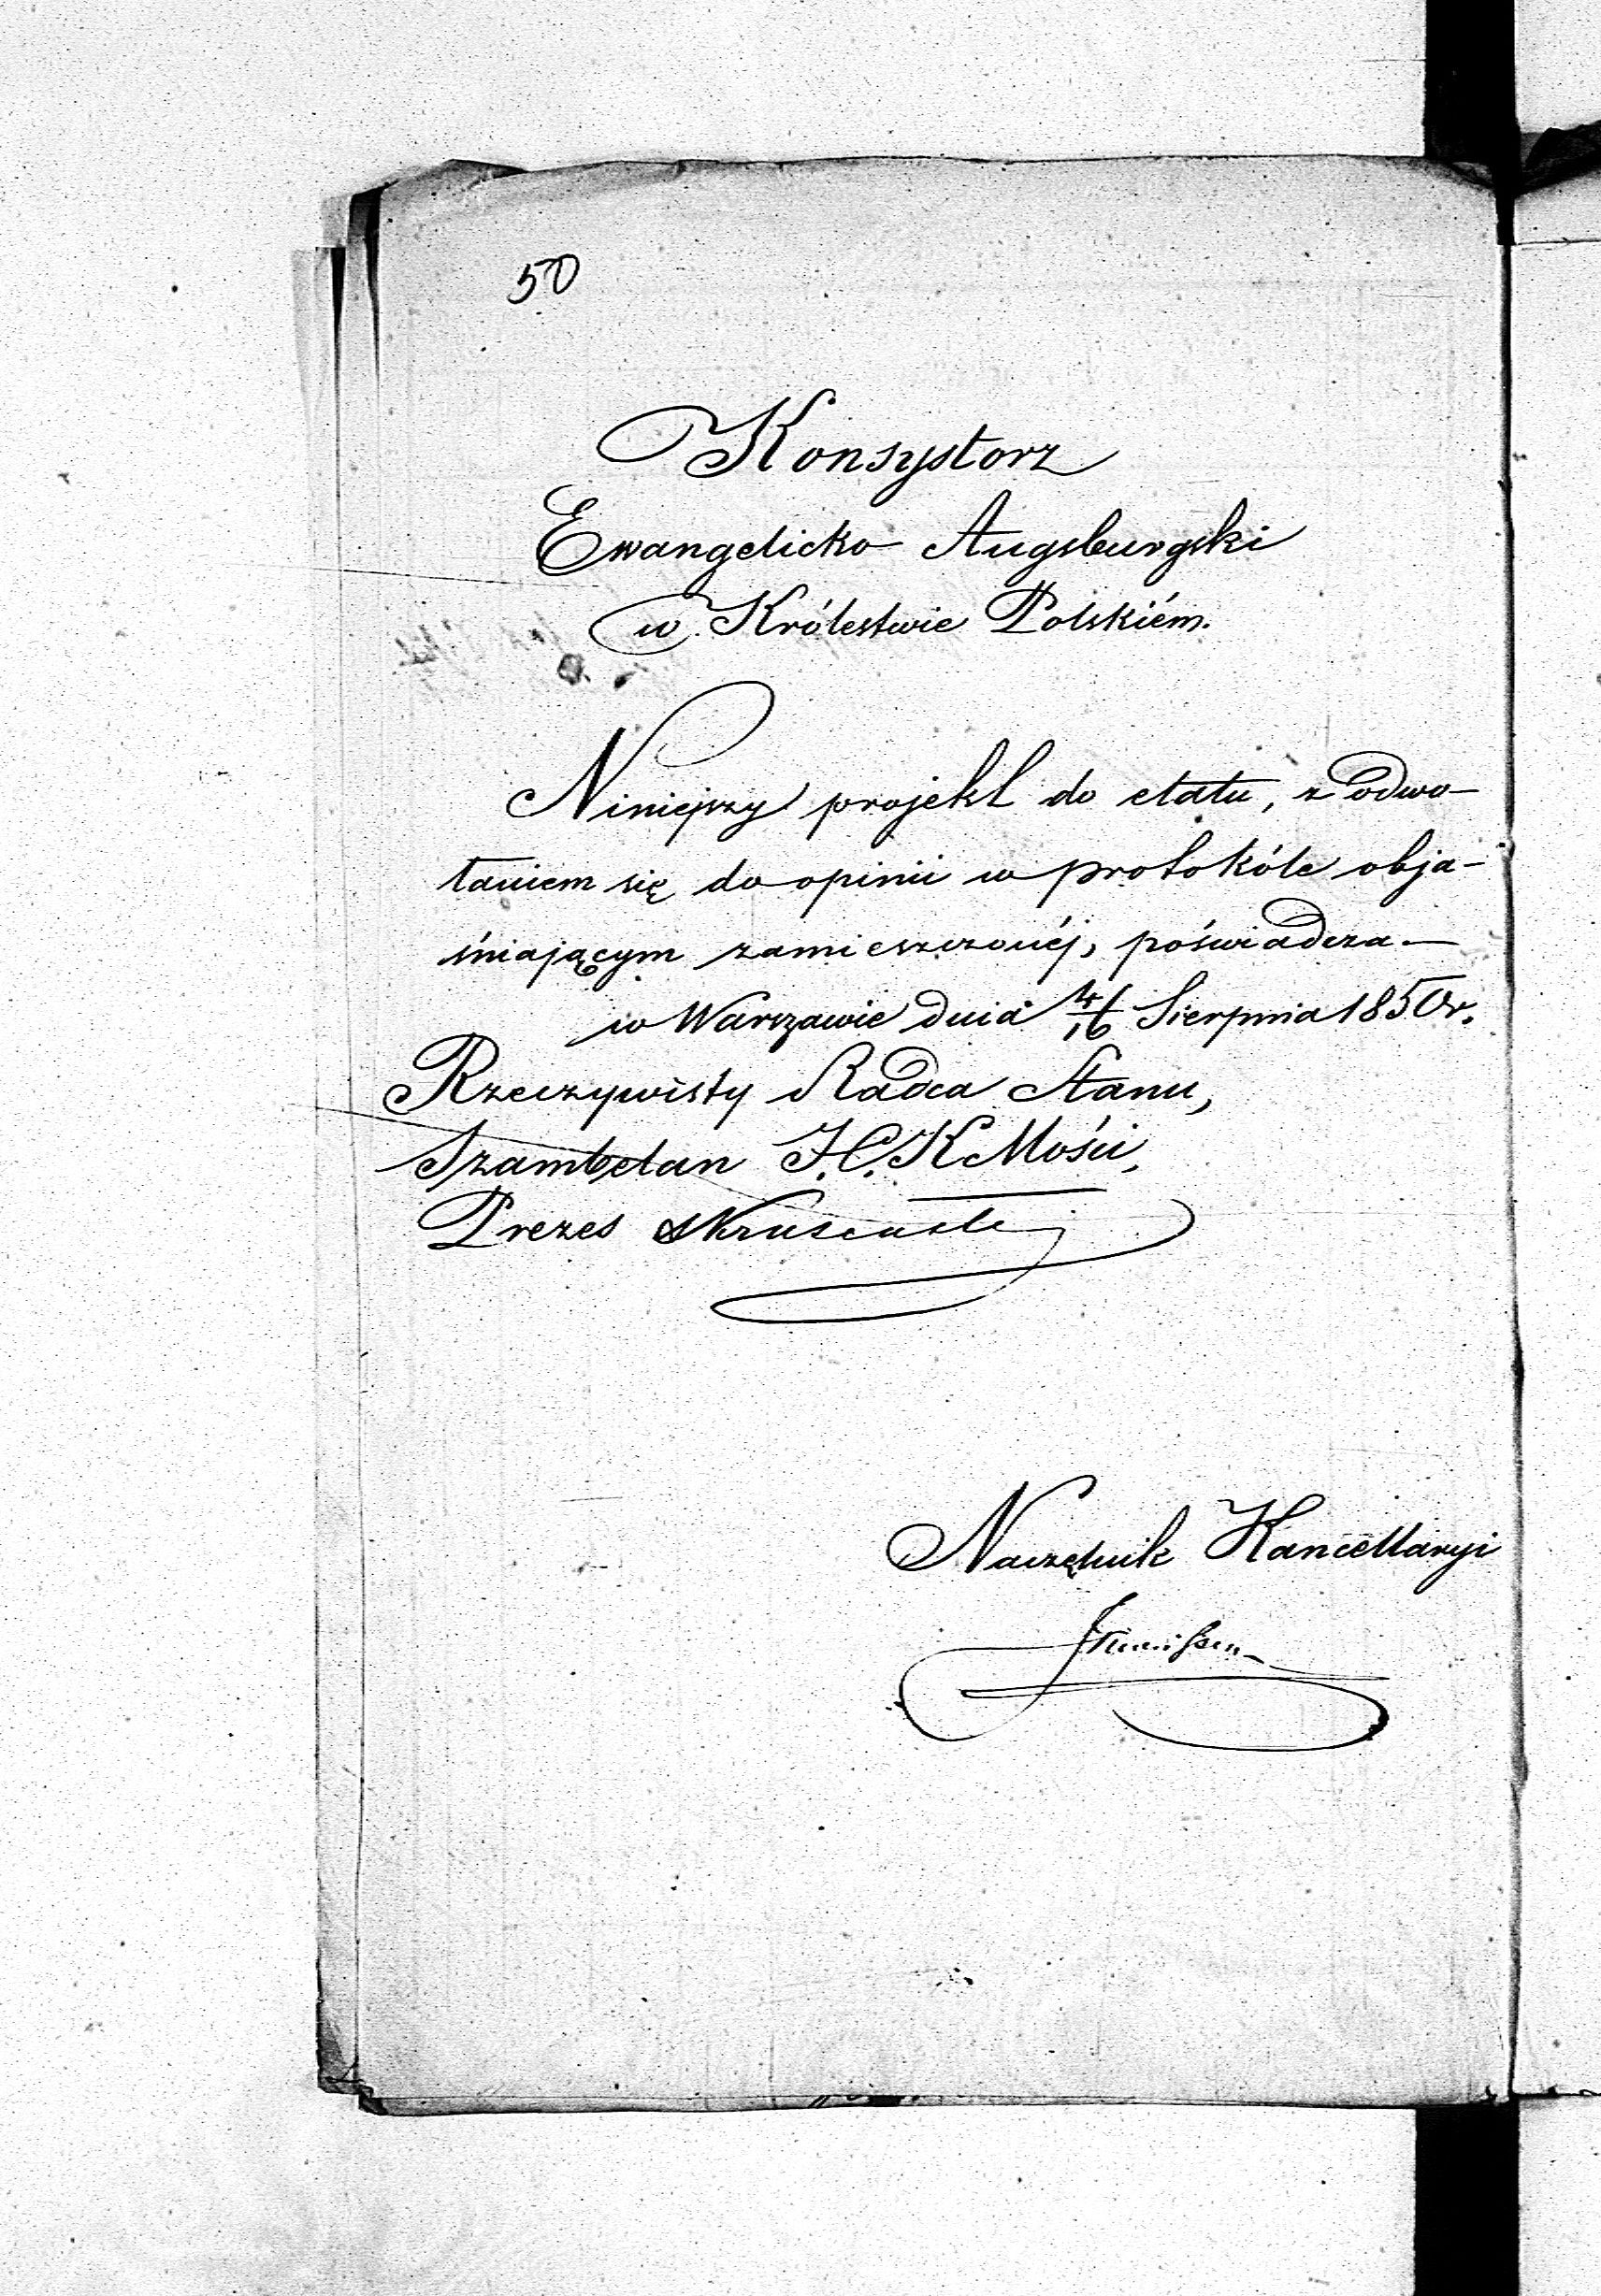 50
Konsystorz
Ewangelicko Augsburgski
w Królestwie Polskiém.
Niniejszy projekt do etatu, z odwo-
łaniem się do opinii w protokóle obja-
śniającym zamieszczonéj, poświadcza.
w Warszawie dnia 4/16 Sierpnia 1850 r.
Rzeczywisty Radca Stanu,
Szambelan J.C.K Mości,
Prezes
Naczelnik Kancellaryi